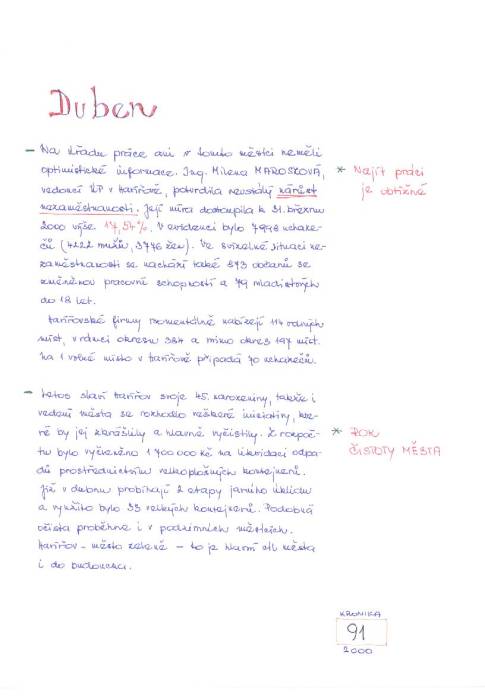 Duben
- Na Úřadu práce ani v tomto měsíci neměli
optimistické informace. Ing. Milena MAROSZOVÁ,
vedoucí ÚP v Havířově, potvrdila neustálý nárůst
nezaměstnanosti. Její míra dostoupila k 31. březnu
2000 výše 17,57%. V evidenci bylo 7998 uchaze-
čů (4222 mužů, 3776 žen). Ve svízelné situaci ne-
zaměstnanosti se nachází také 873 občanů se
změněnou pracovní schopností a 79 mladistvých
do 18 let.
Havířovské firmy momentálně nabízejí 114 volných
míst, v rámci okresu 384 a mimo okres 197 míst.
Na 1 volné místo v Havířově připadá 70 uchazečů.
* Najít práci
je obtížné
- Letos slaví Havířov svoje 45. narozeniny, takže i
vedení města se rozhodlo veškeré iniciativy, kte-
ré by jej zkrášlily a hlavně vyčistily. Z rozpoč-
tu bylo vyčleněno 1 700 000 Kč na likvidaci odpa-
dů prostřednictvím velkoplošných kontejnerů.
Již v dubnu probíhají 2 etapy jarního úklidu
a využito bylo 33 velkých kontejnerů. Podobná
očista proběhne i v podzimních měsících.
Havířov - město zeleně - to je hlavní cíl města
i do budoucna.
* ROK
ČISTOTY MĚSTA
KRONIKA
91
2000